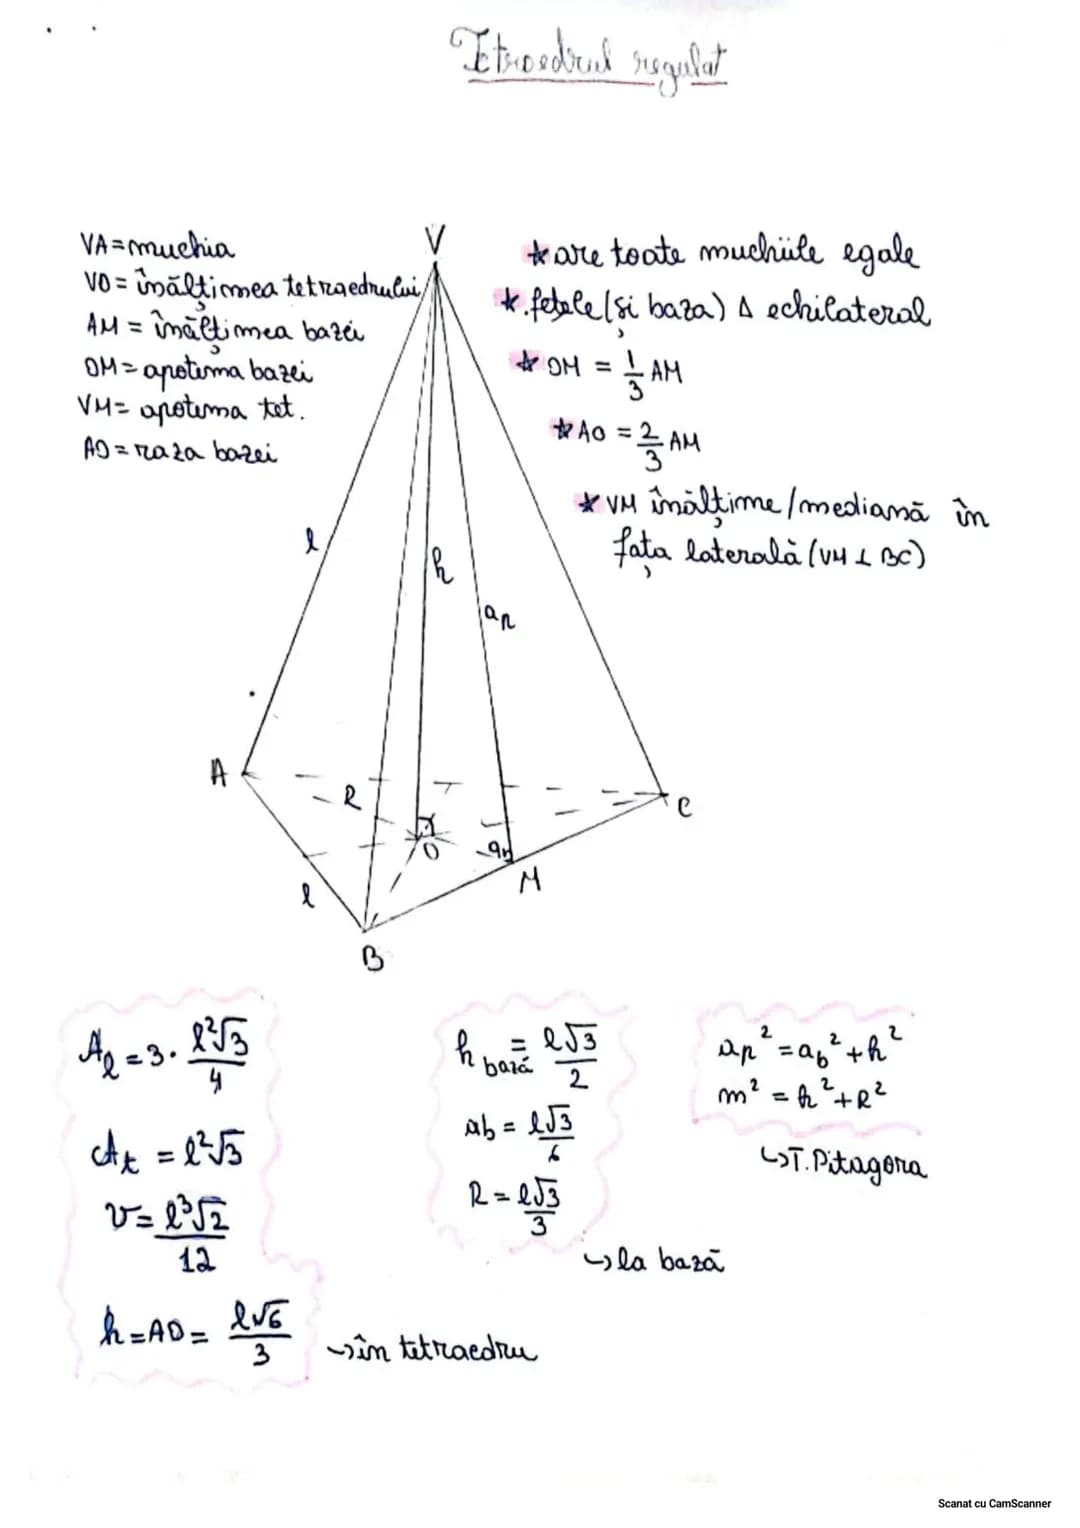 Tetraedrul regulat
VA=muchia
VO = înălțimea tetraedrului
AM = înălțimea bazei
OM = apotema bazei
VM = apotema tet.
AO = raza bazei
* are toate muchiile egale
* fețele (și baza) Δ echilateral
* OM = 1/3 AM
* AO = 2/3 AM
* VM înălțime/mediană în
fața laterală (VM ⊥ BC)
V
l
h
ap
A
R
O
ab
C
l
M
B
Al = 3 · l²√3/4
At = l²√3
V = l³√2/12
h = AO = l√6/3
→ în tetraedru
h bază = l√3/2
ab = l√3/6
R = l√3/3
→ la bază
ap² = ab² + h²
m² = h² + R²
↳ T. Pitagora
Scanat cu CamScanner